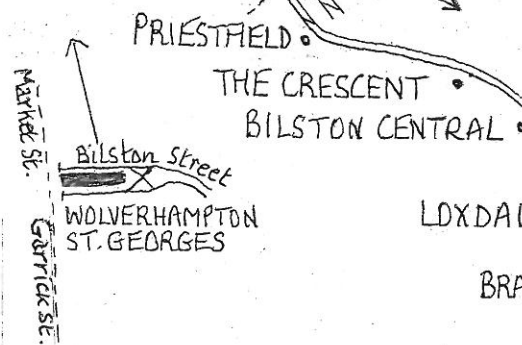 PRIESTFIELD
THE CRESCENT
BILSTON CENTRAL
Market St.
Bilston Street
WOLVERHAMPTON
ST. GEORGES
Garrick St.
LOXDAL
BRA